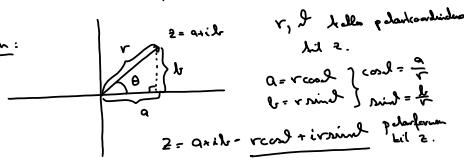 n:
r
z = a+ib
θ
b
a
r, θ kalles polarkoordinatene
til z.
a = r cosθ } cosθ = a/r
b = r sinθ } sinθ = b/r
z = a+ib = rcosθ + i r sinθ polarformen
til z.